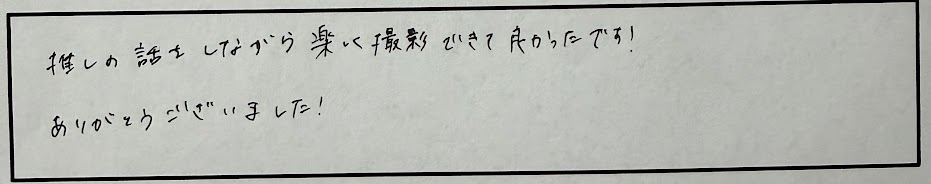 推しの話をしながら楽しく撮影できて良かったです!
ありがとうございました!